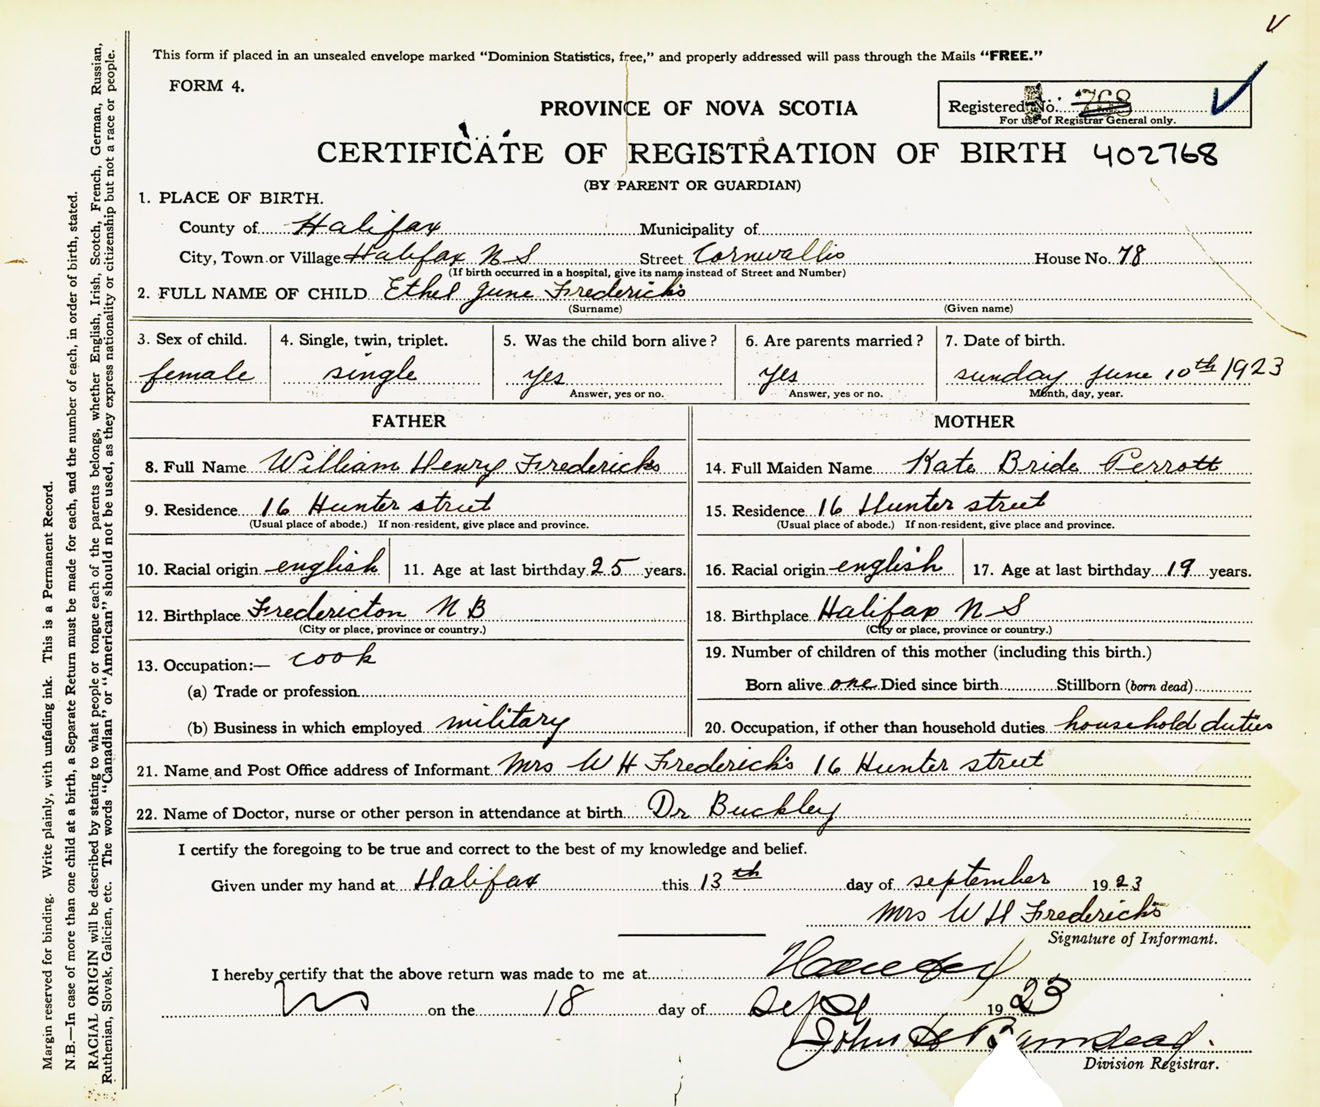 This form if placed in an unsealed envelope marked "Dominion Statistics, free," and properly addressed will pass through the Mails "FREE."
FORM 4.
PROVINCE OF NOVA SCOTIA
Registered No. 768
For use of Registrar General only.
CERTIFICATE OF REGISTRATION OF BIRTH 402768
(BY PARENT OR GUARDIAN)
1. PLACE OF BIRTH.
County of Halifax Municipality of
City, Town or Village Halifax N S Street Cornwallis House No. 78
(If birth occurred in a hospital, give its name instead of Street and Number)
2. FULL NAME OF CHILD Ethel June Fredericks
(Surname) (Given name)
3. Sex of child. 4. Single, twin, triplet. 5. Was the child born alive? 6. Are parents married? 7. Date of birth.
female single yes yes sunday june 10th 1923
Answer, yes or no. Answer, yes or no. Month, day, year.
FATHER MOTHER
8. Full Name William Henry Fredericks 14. Full Maiden Name Kate Bride Perrott
9. Residence 16 Hunter street 15. Residence 16 Hunter street
(Usual place of abode.) If non-resident, give place and province. (Usual place of abode.) If non-resident, give place and province.
10. Racial origin english 11. Age at last birthday 25 years. 16. Racial origin english 17. Age at last birthday 19 years.
12. Birthplace Fredericton N B 18. Birthplace Halifax N S
(City or place, province or country.) (City or place, province or country.)
13. Occupation:— cook 19. Number of children of this mother (including this birth.)
(a) Trade or profession Born alive one Died since birth Stillborn (born dead)
(b) Business in which employed military 20. Occupation, if other than household duties household duties
21. Name and Post Office address of Informant Mrs W H Frederick's 16 Hunter street
22. Name of Doctor, nurse or other person in attendance at birth Dr Buckley
I certify the foregoing to be true and correct to the best of my knowledge and belief.
Given under my hand at Halifax this 13th day of september 1923
Mrs W H Fredericks
Signature of Informant.
I hereby certify that the above return was made to me at
on the 18 day of Sept 1923
John
Division Registrar.
Margin reserved for binding. Write plainly, with unfading ink. This is a Permanent Record.
N.B.—In case of more than one child at a birth, a Separate Return must be made for each, and the number of each, in order of birth, stated.
RACIAL ORIGIN will be described by stating to what people or tongue each of the parents belongs, whether English, Irish, Scotch, French, German, Russian,
Ruthenian, Slovak, Galician, etc. The words "Canadian" or "American" should not be used, as they express nationality or citizenship but not a race or people.